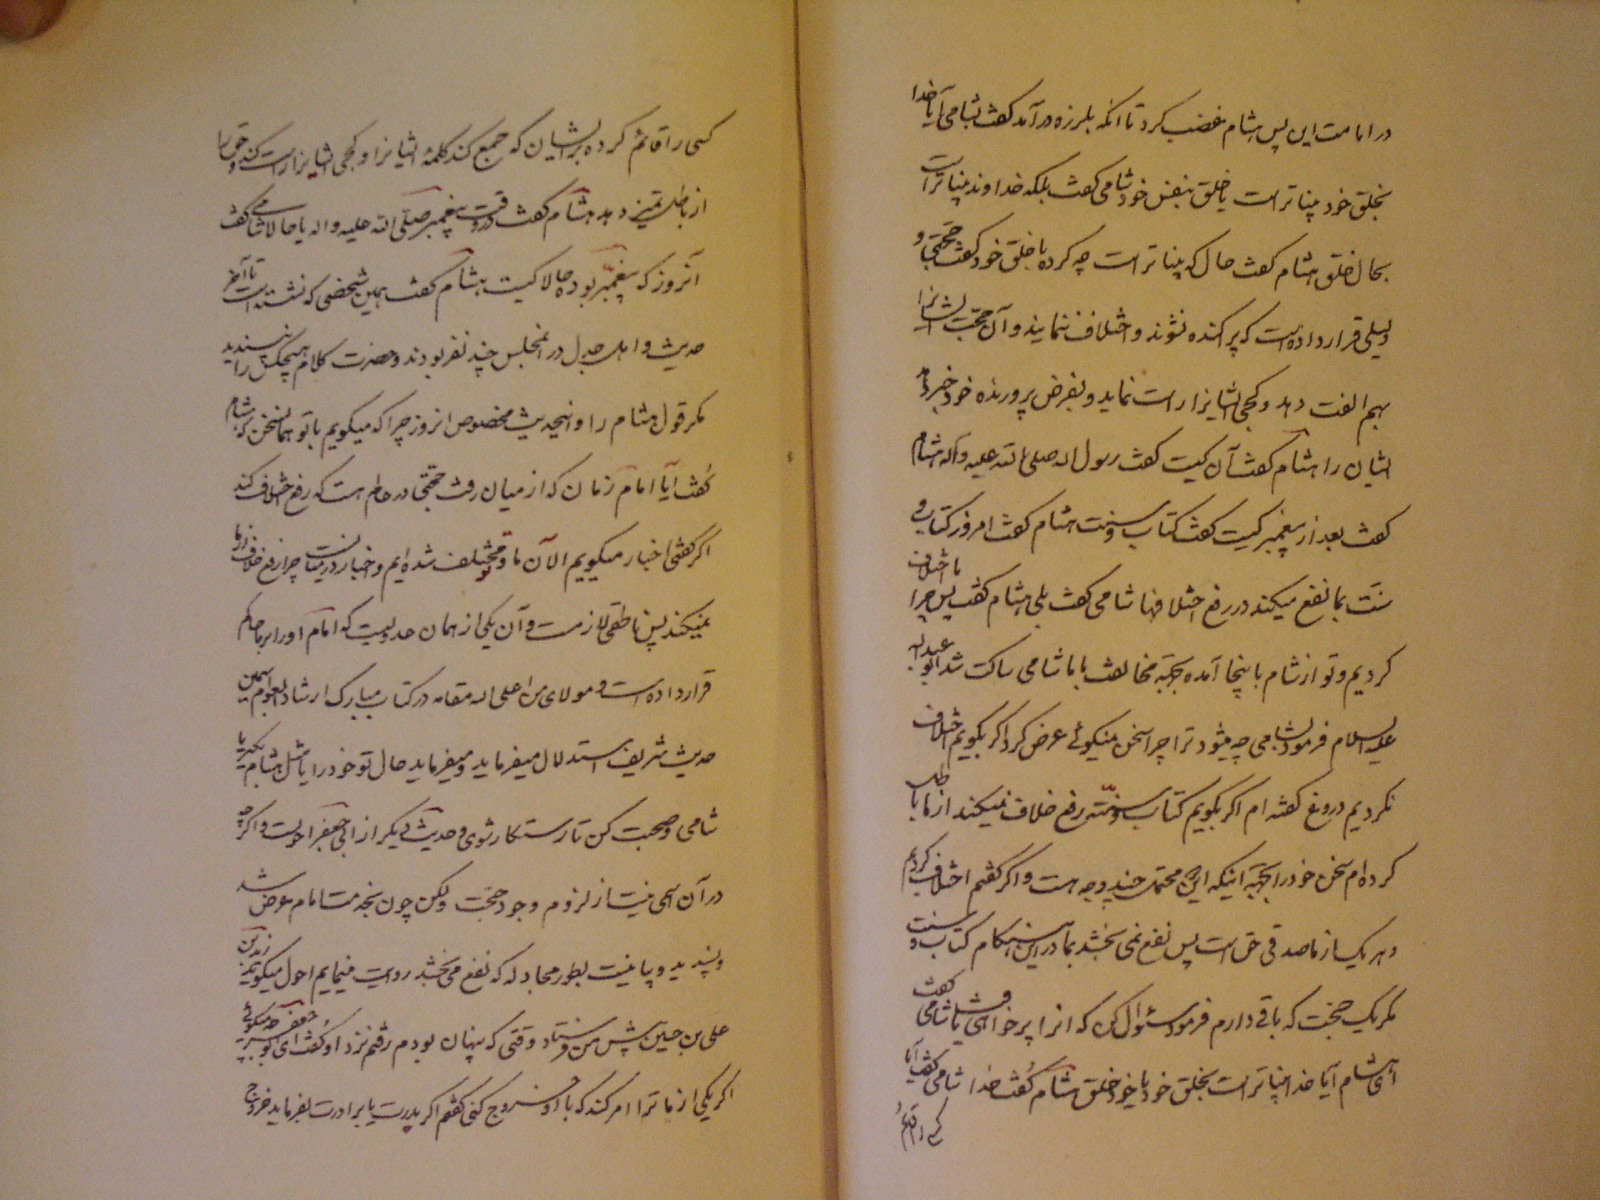 در امامت این پس هشام غضب کرد تا آنکه بلرزه درآمد گفت بشامی آیا خدا
بخلق خود بیناتر است یا خلق بنفس خود شامی گفت بلکه خداوند بیناتر است
بحال خلق هشام گفت حال که بیناتر است چه کرده با خلق خود گفت حجتی و
دلیلی قرار داده است که پراکنده نشوند و اختلاف ننمایند و آن حجت ایشانرا
بهم الفت دهد و کجی ایشانرا راست نماید و بفرض پرورنده خود خبر دهد
ایشان را هشام گفت آن کیست گفت رسول الله صلی الله علیه و آله هشام
گفت بعد از پیغمبر کیست گفت کتاب و سنت هشام گفت امروز کتاب و
سنت بما نفع میکند در رفع اختلافها شامی گفت بلی هشام گفت پس چرا ما اختلاف
کردیم و تو از شام باینجا آمده بجهة مخالفت با ما شامی ساکت شد ابو عبدالله
علیه السلام فرمود بشامی چه میشود ترا چرا سخن نمیگوئی عرض کرد اگر بگویم اختلاف
نکردیم دروغ گفته ام اگر بگویم کتاب و سنت رفع خلاف میکند از ما باطل
کرده ام سخن خود را بجهة اینکه این محتمل چند وجه هست و اگر گفتم اختلاف کردیم
و هر یک از ما صدق حق است پس نفع نمی بخشد بما در این هنگام کتاب و سنت
مگر یک حجت که باقی دارم فرمود سئوال کن که او را پر خواهی یافت شامی گفت
ای هشام آیا خدا بیناتر است بخلق خود یا خود خلق هشام گفت خدا شامی گفت آیا
کسی را قائم
کسی را قائم کرده برایشان که جمع کند کلمه ایشانرا و کجی ایشانرا راست کند و حق را
از باطل تمیز دهد هشام گفت در وقت پیغمبر صلی الله علیه و آله یا حالا شامی گفت
آنروز که پیغمبر بوده حالا کیست هشام گفت همین شخصی که نشسته است تا آخر
حدیث و اهل جدل در آنمجلس چند نفر بودند و حضرت کلام هیچکس را نپسندید
مگر قول هشام را و اینحدیث مخصوص امروز چرا که میگویم با تو همانسخن که هشام
گفت آیا امام زمان که از میان رفت حجتی در عالم هست که رفع اختلاف کند
اگر گفتی اخبار میگوییم الآن ما و تو مختلف شده ایم و اخبار در میانست چرا رفع خلاف از ما
نمیکند پس ناطقی لازمست و آن یکی از همان عدولیست که امام او را بر ما حاکم
قرار داده است و مولای من اعلی الله مقامه در کتاب مبارک ارشاد العوام بهمین
حدیث شریف استدلال میفرماید و میفرماید حال تو خود را یا مثل هشام بگیر یا
شامی و صحبت کن تا رستگار شوی و حدیث دیگر از ابی جعفر احول است و اگر چه
در آن اسمی نیست از لزوم وجود حجت ولکن چون بخدمت امام عرض شد
و پسندید و با منیت بطور مجادله که نفع می بخشد روایت مینمایم احول میگوید زید بن
علی بن حسین پیش من فرستاد وقتی که پنهان بودم رفتم نزد او گفت ای ابو جعفر چه میگوئی
اگر یکی از ما ترا امر کند که با او خروج کنی گفتم اگر پدرت یا برادرت بفرماید خروج